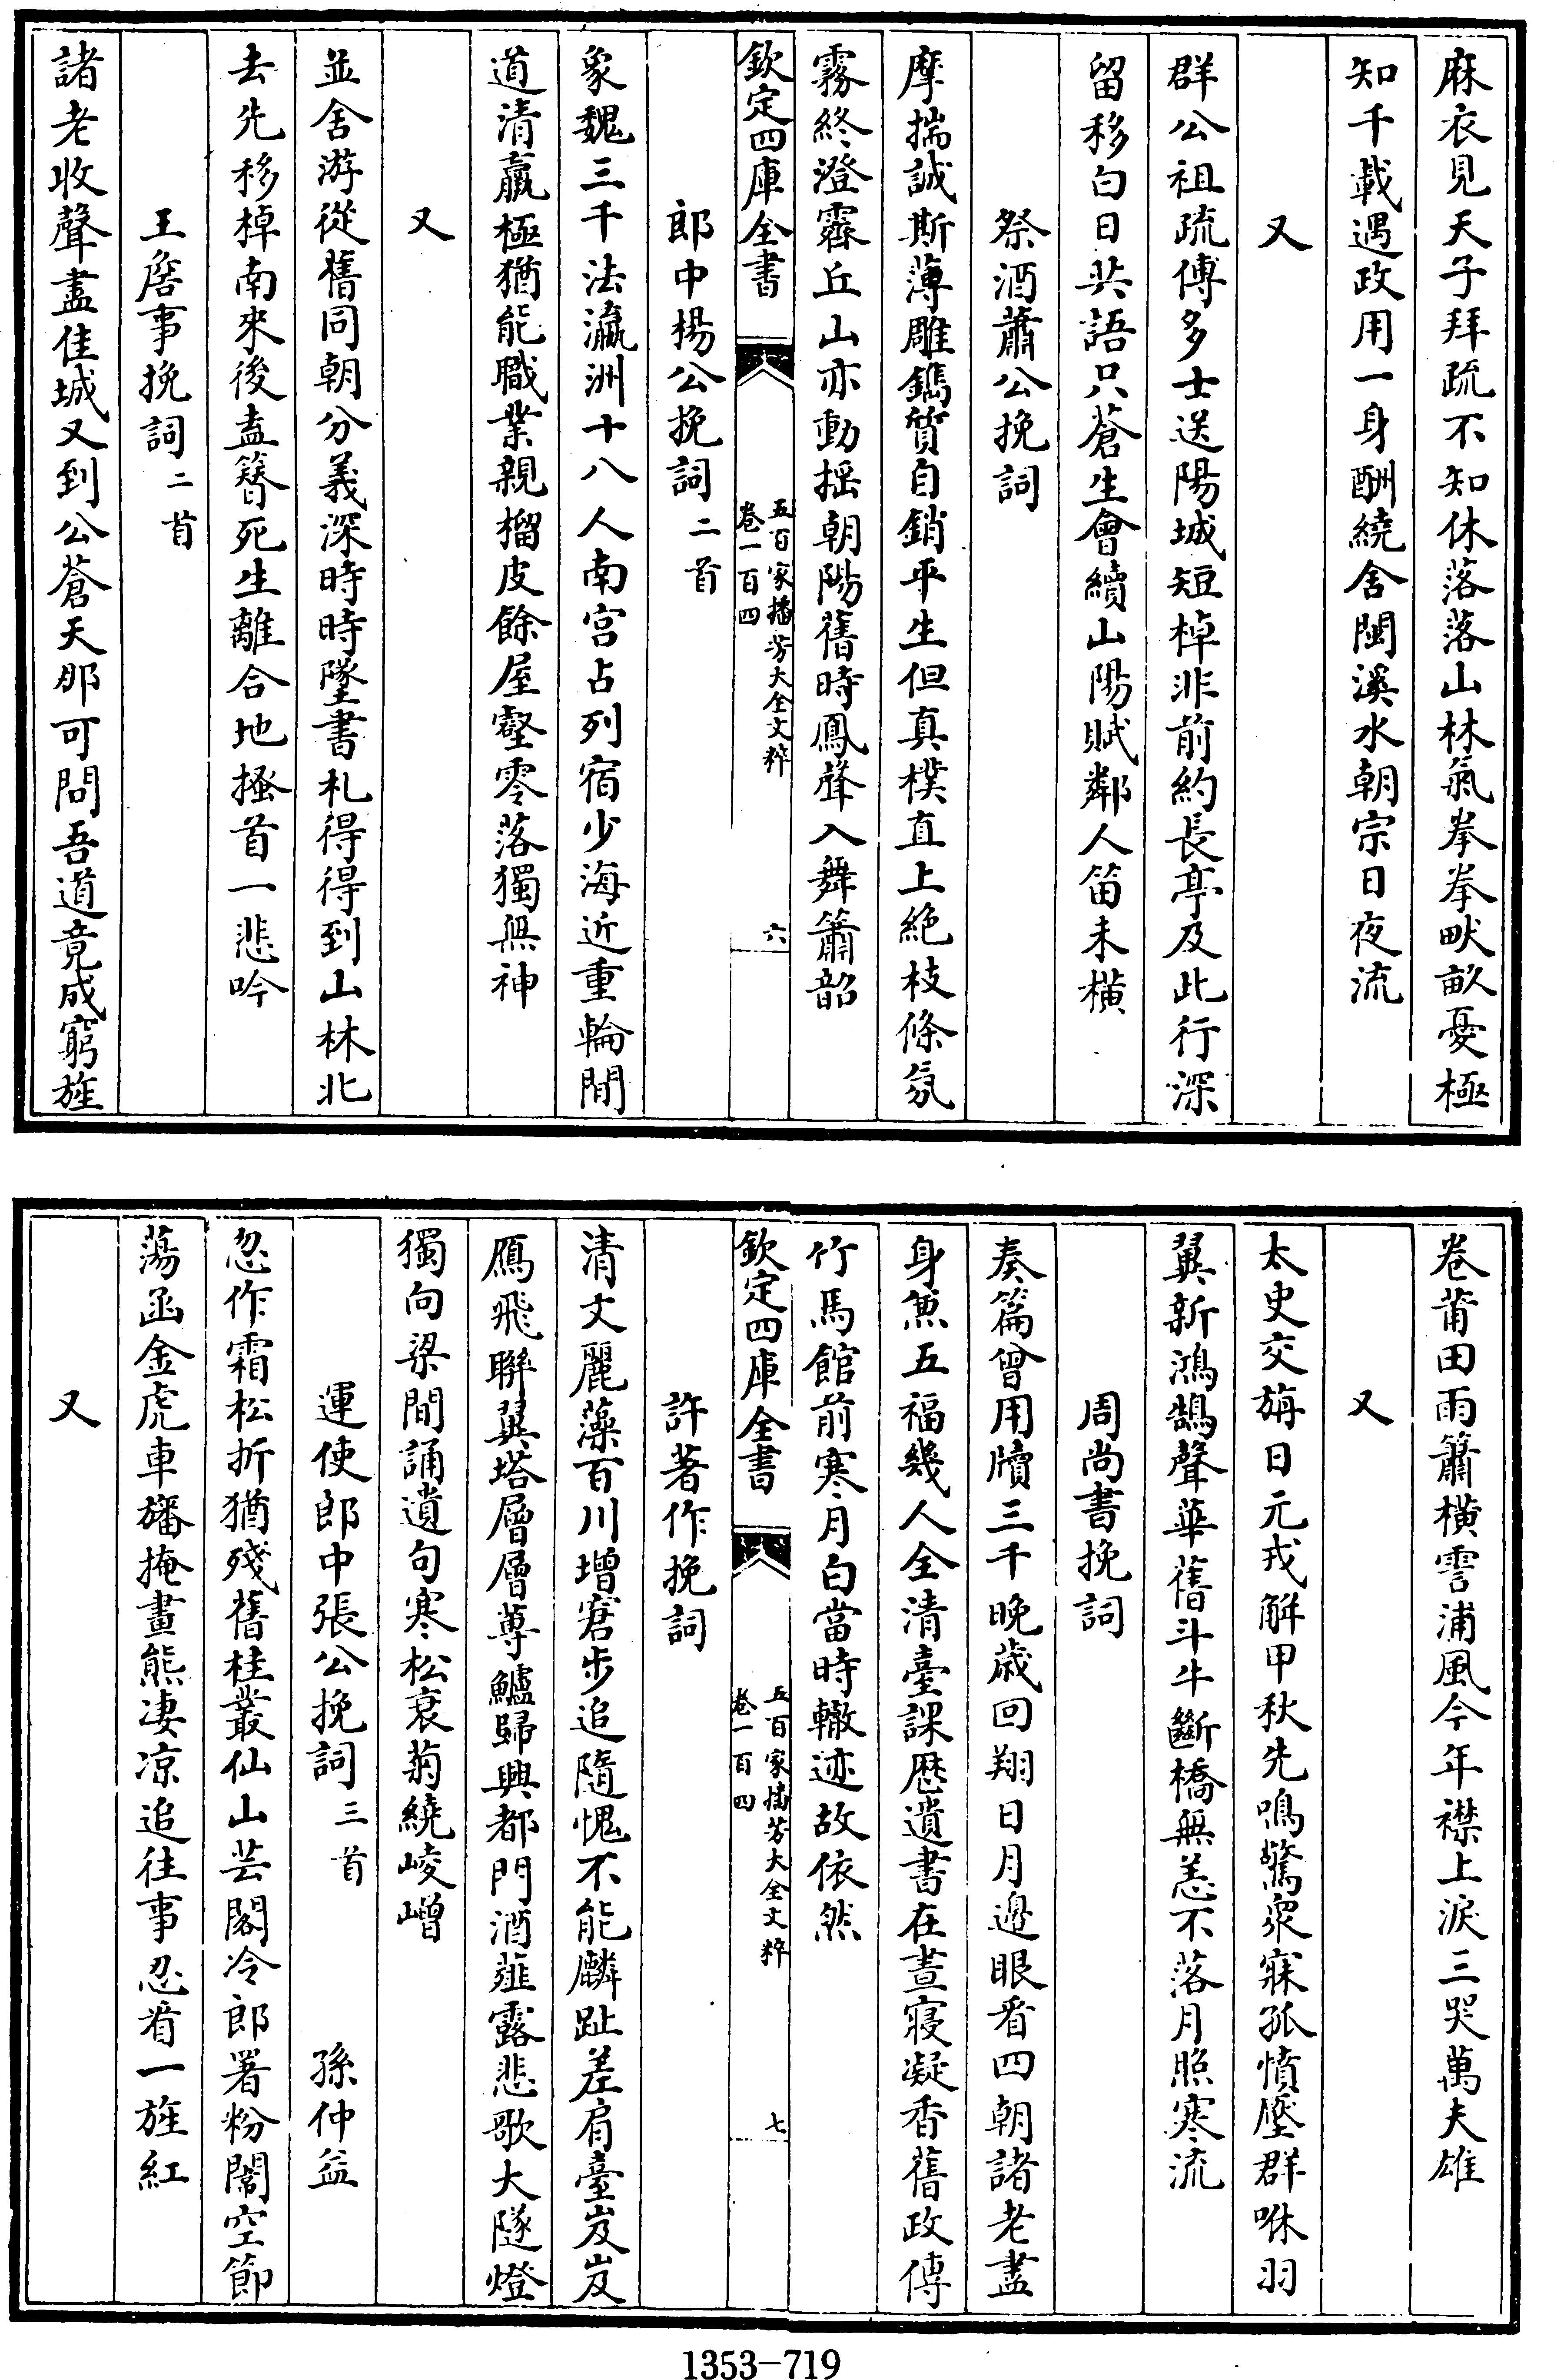 麻衣見天子拜疏不知休落落山林氣拳拳畎畝憂極
知千載遇政用一身酬繞舍閩溪水朝宗日夜流
又
群公祖疏傅多士送陽城短棹非前約長亭及此行深
留移白日共語只蒼生會續山陽賦鄰人笛未橫
祭酒蕭公挽詞
摩揣誠斯薄雕鐫質自銷平生但真樸直上絶枝條氛
霧終澄霽丘山亦動揺朝陽舊時鳳聲入舞簫韶
欽定四庫全書
五百家播芳大全文粹
卷一百四
六
郎中楊公挽詞二首
象魏三千法瀛洲十八人南宫占列宿少海近重輪閒
道清羸極猶能職業親榴皮餘屋壑零落獨無神
又
並舍游從舊同朝分義深時時墜書札得得到山林北
去先移棹南來後盍簪死生離合地搔首一悲吟
王詹事挽詞二首
諸老收聲盡佳城又到公蒼天那可問吾道竟成窮旌
卷莆田雨簫橫霅浦風今年襟上淚三哭萬夫雄
又
太史交旃日元戎解甲秋先鳴驚衆寐孤憤壓群咻羽
翼新鴻鵠聲華舊斗牛斷橋無恙不落月照寒流
周尚書挽詞
奏篇曾用牘三千晚歳回翔日月邉眼看四朝諸老盡
身兼五福幾人全清臺課厯遺書在晝寢凝香舊政傳
竹馬館前寒月白當時轍迹故依然
欽定四庫全書
五百家播芳大全文粹
卷一百四
七
許著作挽詞
清文麗藻百川增窘步追隨愧不能麟趾差肩臺岌岌
鴈飛聨翼塔層層蓴鱸歸興都門酒薤露悲歌大隧燈
獨向梁間誦遺句寒松衰菊繞崚嶒
運使郎中張公挽詞三首
孫仲益
忽作霜松折猶殘舊桂叢仙山芸閣冷郎署粉闈空節
蕩函金虎車旛掩畫熊凄凉追往事忍看一旌紅
又
1353-719